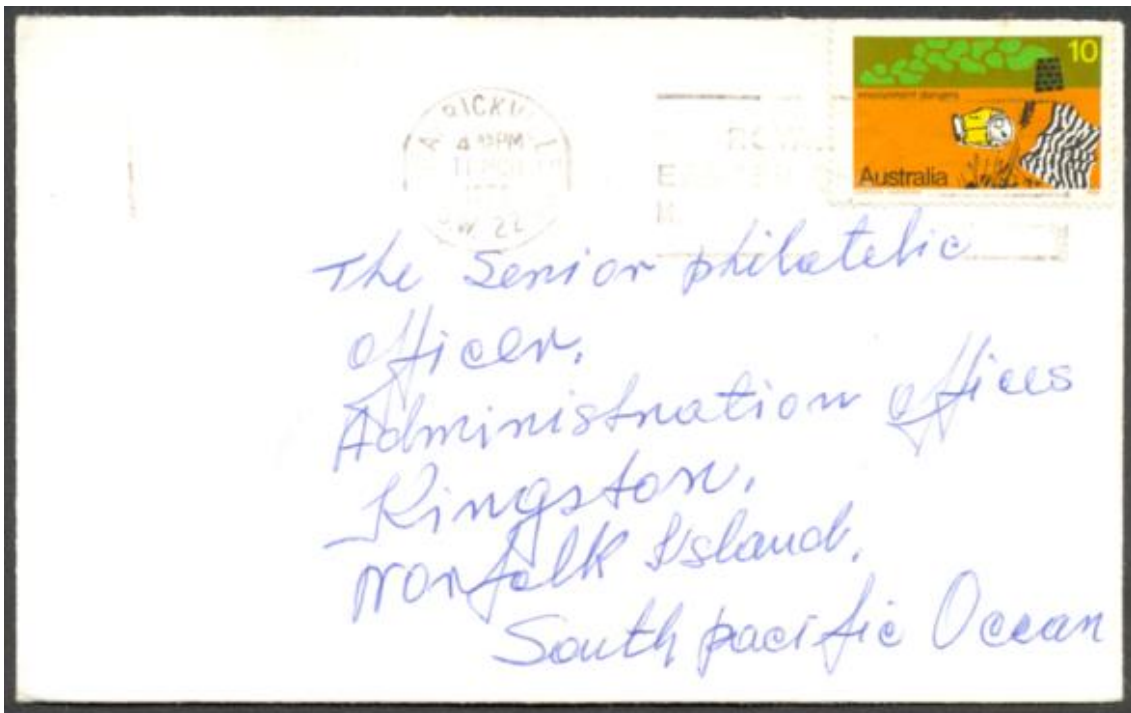 10
environment dangers
Australia
4 PM
The Senior philatelic
officer,
Administration offices
Kingston,
Norfolk Island,
South pacific Ocean